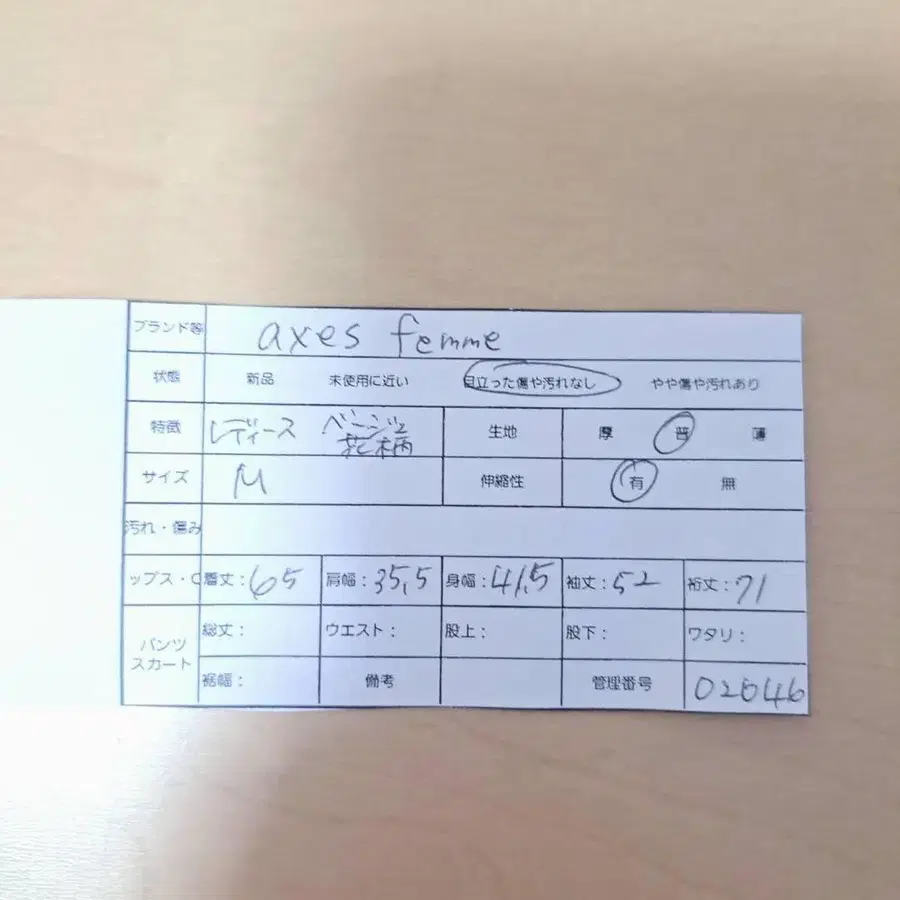 ブランド等 axes femme
状態 新品 未使用に近い 目立った傷や汚れなし やや傷や汚れあり
特徴 レディース ベージュ 花柄 生地 厚 普 薄
サイズ M 伸縮性 有 無
汚れ・傷み
ップス・C 着丈:65 肩幅:35,5 身幅:41,5 袖丈:52 裄丈:71
パンツ スカート 総丈: ウエスト: 股上: 股下: ワタリ:
裾幅: 備考 管理番号 02646